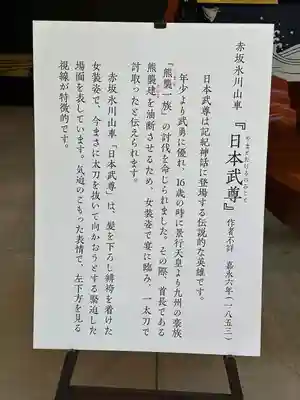 赤坂氷川山車
『日本武尊』
やまとたけるのみこと
作者不詳　嘉永六年(一八五三)
日本武尊は記紀神話に登場する伝説的な英雄です。
年少より武勇に優れ、16歳の時に景行天皇より九州の豪族
「熊襲一族」の討伐を命じられました。その際、首長である
熊襲建を油断させるため、女装姿で宴に臨み、一太刀で
討取ったと伝えられます。
赤坂氷川山車「日本武尊」は、髪を下ろし緋袴を着けた
女装姿で、今まさに太刀を抜いて向かおうとする緊迫した
場面を表しています。気迫のこもった表情で、左下方を見る
視線が特徴的です。